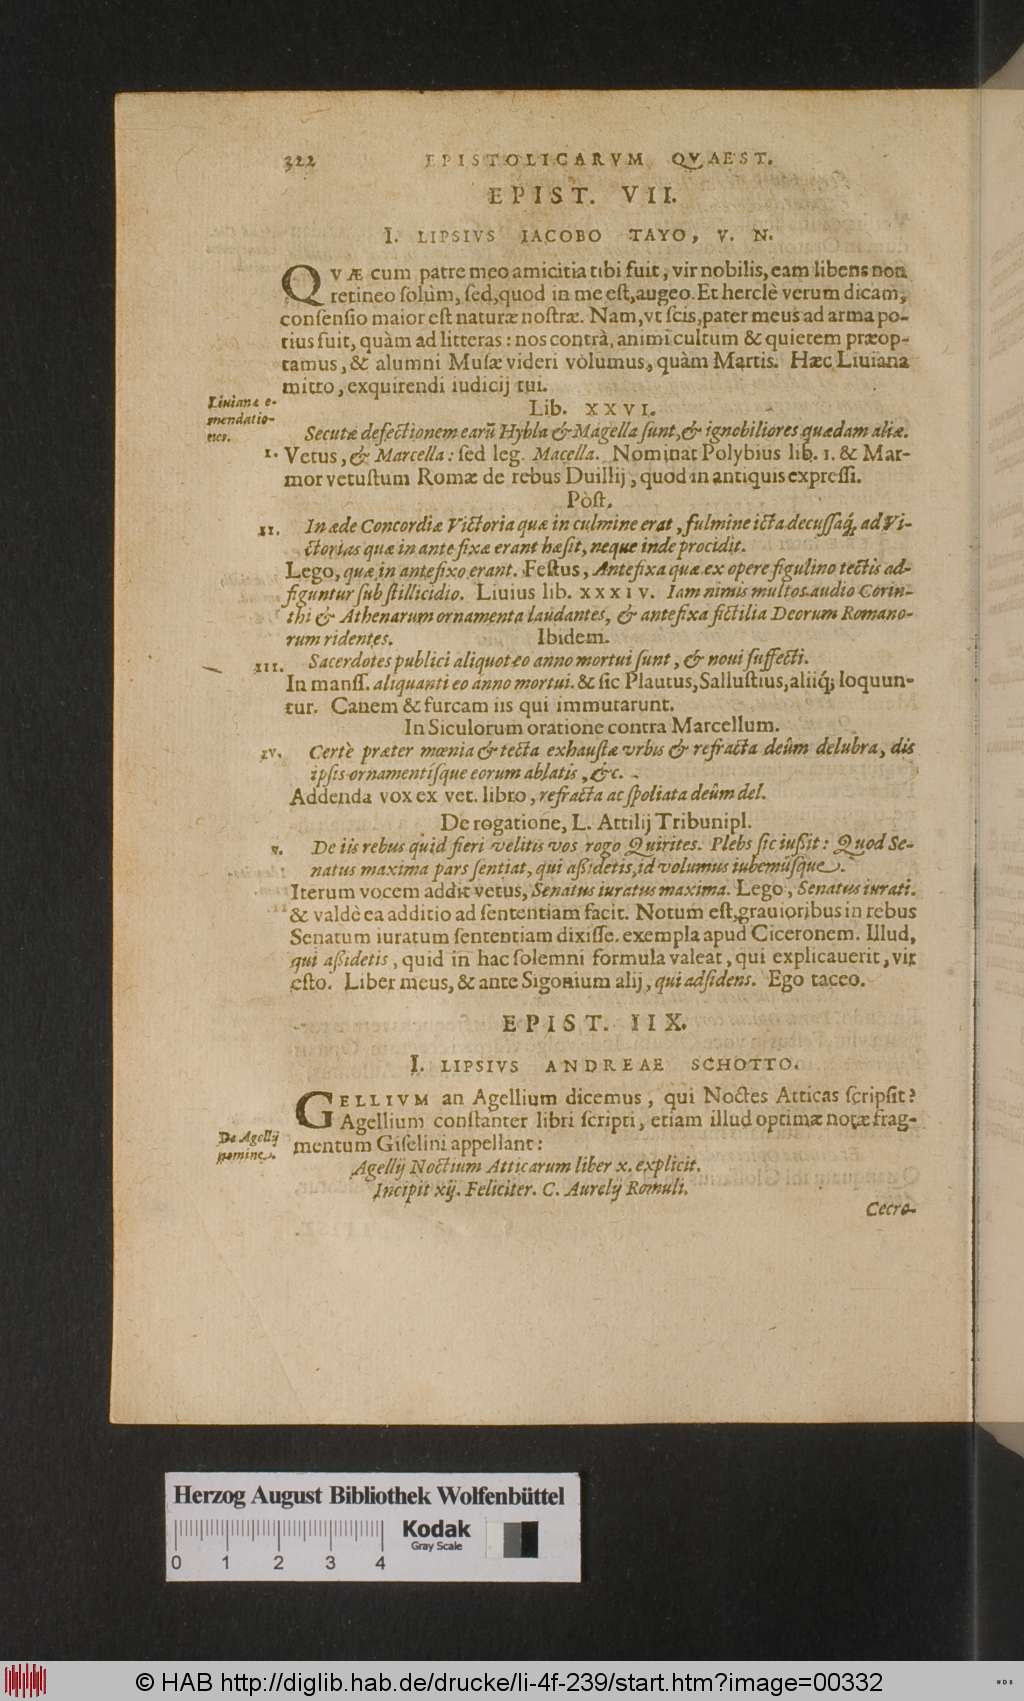 322 EPISTOLICARVM QVAEST.
EPIST. VII.
I. LIPSIVS IACOBO TAYO, V. N.
QVÆ cum patre meo amicitia tibi fuit, vir nobilis, eam libens non
retineo solùm, sed, quod in me est, augeo. Et herclè verum dicam,
consensio maior est naturæ nostræ. Nam, vt scis, pater meus ad arma po-
tius fuit, quàm ad litteras: nos contrà, animi cultum & quietem præop-
tamus, & alumni Musæ videri volumus, quàm Martis. Hæc Liuiana
mitto, exquirendi iudicij tui.
Liuianæ e-
mendatio-
nes.
Lib. XXVI.
Secutæ defectionem earũ Hybla & Magella sunt, & ignobiliores quædam aliæ.
I. Vetus, & Marcella: sed leg. Macella. Nominat Polybius lib. 1. & Mar-
mor vetustum Romæ de rebus Duillij, quod in antiquis expressi.
Pòst,
II. In æde Concordiæ Victoria quæ in culmine erat, fulmine icta decussaq́, ad Vi-
ctorias quæ in antefixæ erant hæsit, neque inde procidit.
Lego, quæ in antefixo erant. Festus, Antefixa quæ ex opere figulino tectis ad-
figuntur sub stillicidio. Liuius lib. XXXIV. Iam nimis multos audio Corin-
thi & Athenarum ornamenta laudantes, & antefixa fictilia Deorum Romano-
rum ridentes. Ibidem.
III. Sacerdotes publici aliquot eo anno mortui sunt, & noui suffecti.
In manss. aliquanti eo anno mortui. & sic Plautus, Sallustius, aliiq́; loquun-
tur. Canem & furcam iis qui immutarunt.
In Siculorum oratione contra Marcellum.
IV. Certè præter mœnia & tecta exhaustæ vrbis & refracta deûm delubra, dis
ipsis ornamentísque eorum ablatis, &c.
Addenda vox ex vet. libro, refracta ac spoliata deûm del.
De rogatione, L. Attilij Tribunipl.
V. De iis rebus quid fieri velitis vos rogo Quirites. Plebs sic iußit: Quod Se-
natus maxima pars sentiat, qui aßidetis, id volumus iubemúsque.
Iterum vocem addit vetus, Senatus iuratus maxima. Lego, Senatus iurati.
& valdè ea additio ad sententiam facit. Notum est, grauioribus in rebus
Senatum iuratum sententiam dixisse. exempla apud Ciceronem. Illud,
qui aßidetis, quid in hac solemni formula valeat, qui explicauerit, vir
esto. Liber meus, & ante Sigonium alij, qui adsidens. Ego taceo.
EPIST. IIX.
I. LIPSIVS ANDREAE SCHOTTO.
GELLIVM an Agellium dicemus, qui Noctes Atticas scripsit?
Agellium constanter libri scripti, etiam illud optimæ notæ frag-
mentum Giselini appellant:
De Agellij
nomine.
Agellij Noctium Atticarum liber x. explicit.
Incipit xij. Feliciter. C. Aurelij Romuli.
Cecro-
Herzog August Bibliothek Wolfenbüttel
Kodak
Gray Scale
0 1 2 3 4
© HAB http://diglib.hab.de/drucke/li-4f-239/start.htm?image=00332